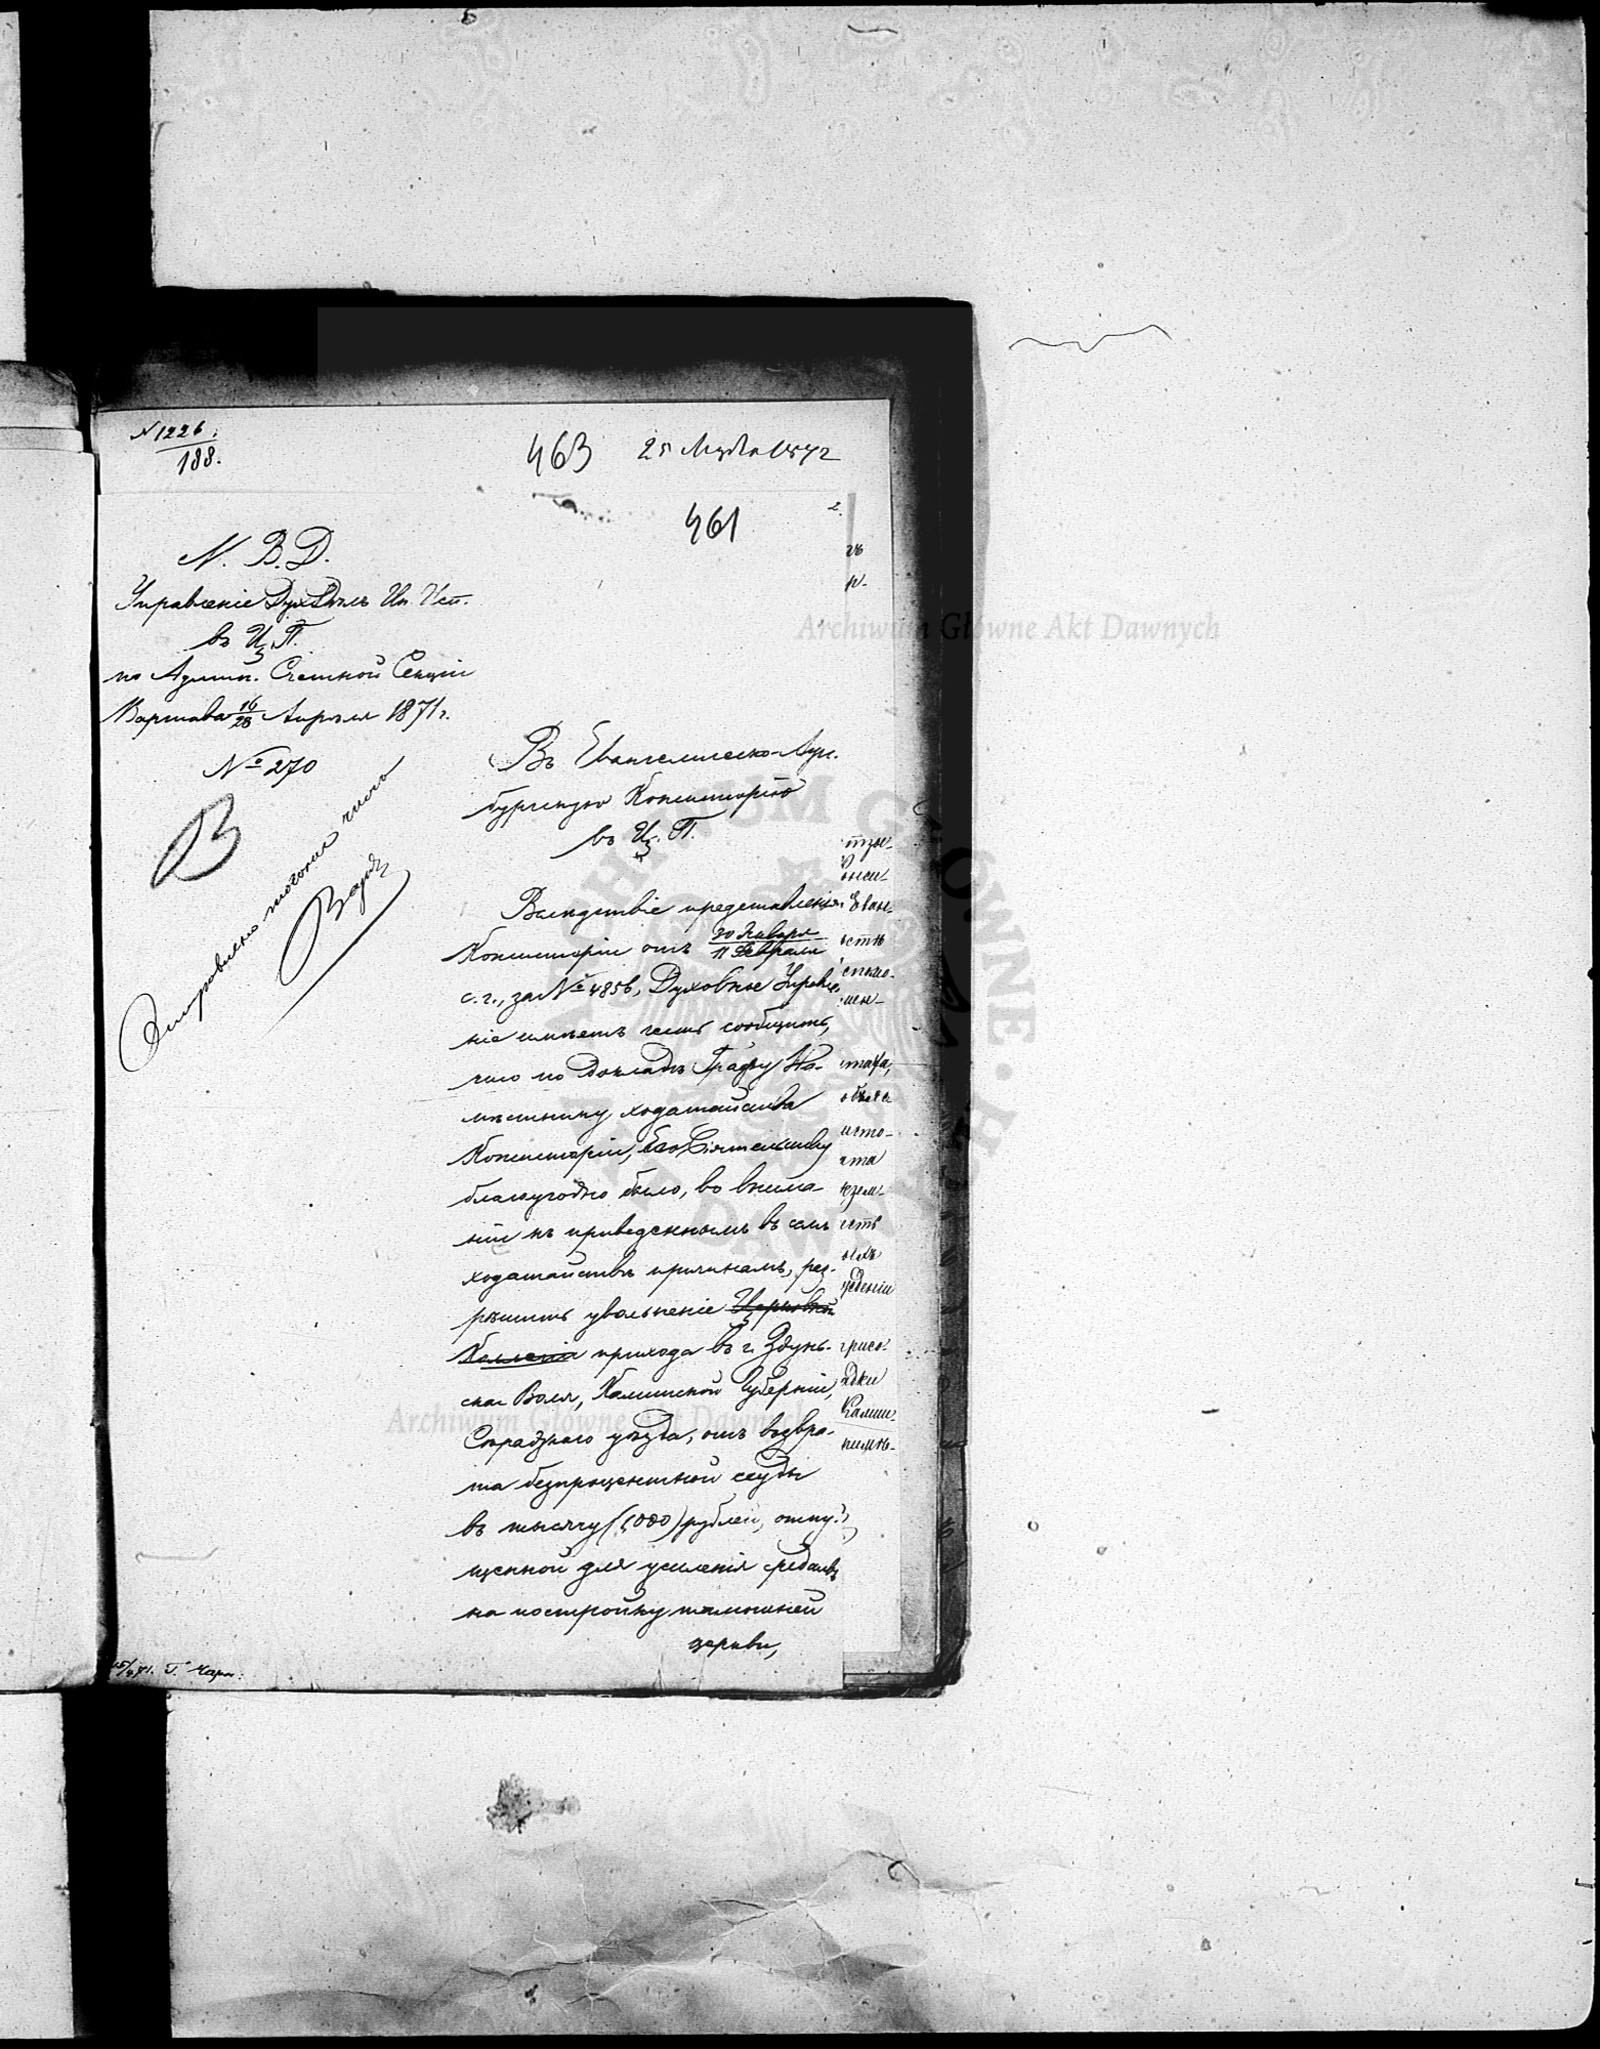 N 1226.
188.
463
461
М. В. Д.
Управленіе Дух. Дѣлъ Ин. Исп.
въ Ц. П.
по Админ. Счетной Секціи
Варшава 16/28 Апрѣля 1871 г.
№ 270
В
Отправлено того же числа
Въ Евангелическо-Аугс-
бургскую Консисторію
въ Ц. П.
Вслѣдствіе представленія
Консисторіи отъ 30 Января / 11 Февраля
с. г., за № 4856, Духовное Управле-
ніе имѣетъ честь сообщить,
что по докладѣ Графу На-
мѣстнику ходатайства
Консисторіи, Его Сіятельству
благоугодно было, во внима-
ніи къ приведеннымъ въ семъ
ходатайствѣ причинамъ, раз-
рѣшить увольненіе Церковной
Коллегіи прихода въ г. Здунь-
ская Воля, Калишской Губерніи,
Сѣрадзкаго уѣзда, отъ возвра-
та безпроцентной ссуды
въ тысячу (1000) рублей, отпу-
щенной для усиленія средствъ
на постройку тамошней
церкви,
Archiwum Główne Akt Dawnych
Archiwum Główne Akt Dawnych